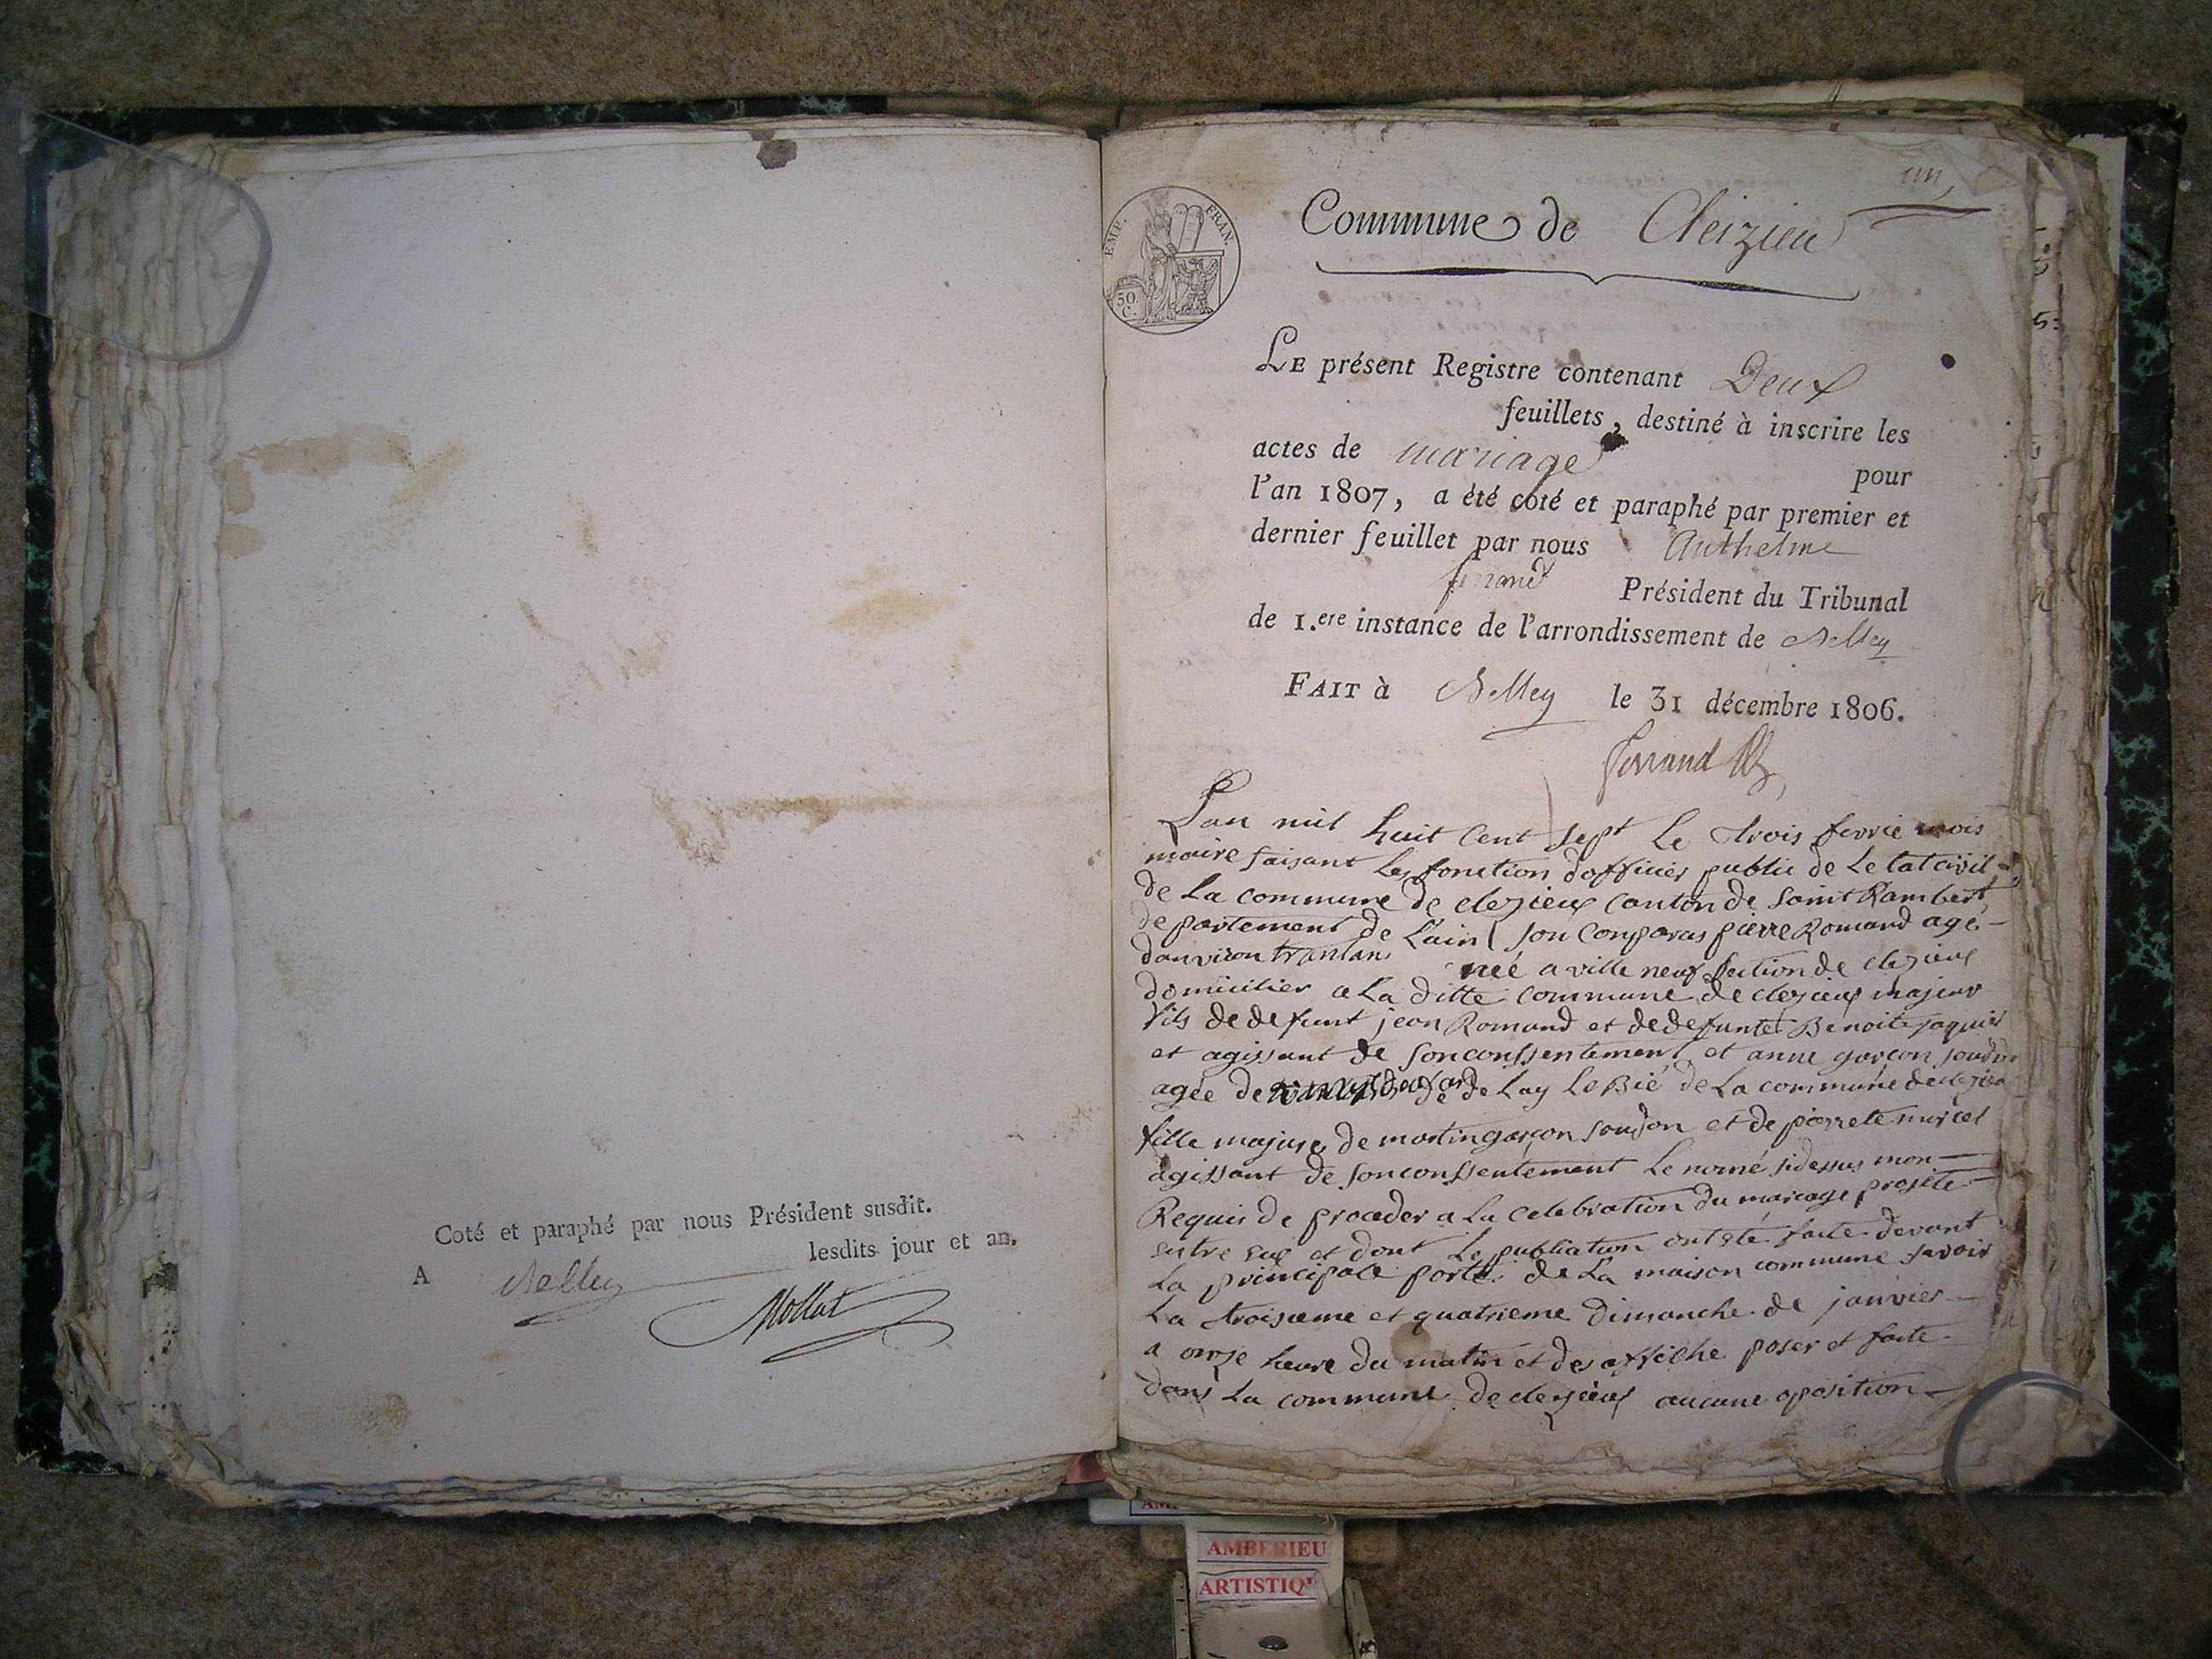 Coté et paraphé par nous Président susdit.
A Belley lesdits jour et an.
Mollet
un
EMP. FRAN.
50
C.
Commune de Cleizieu
LE présent Registre contenant Deux
feuillets, destiné à inscrire les
actes de mariage pour
l'an 1807, a été coté et paraphé par premier et
dernier feuillet par nous Anthelme
ferrand Président du Tribunal
de 1.ere instance de l'arrondissement de Belley
FAIT à Belley le 31 décembre 1806.
ferrand
Lan mil huit Cent Sept Le trois fevrié mois
maire faisant Les fonction dofficier public de Le tat civil
de La commune de clezieux canton de Saint Rambert
departement de Lain son Conparus pierre Romand agé
danviron trantans neé a ville neuf Section de clezieux
domicilier a La ditte commune de clezieux majeur
fils de defunt jean Romand et de defunte Benoite jaquier
et agissant de son conssentement et anne garcon
agée de de Lay Le Bié de La commune de clezieu
fille majure de martin garcon soudon et de pierrete
agissant de son conssentement Le nomé sidessus mon
Requis de proceder a La celebration du mariage projete
entre eux et dont Le publiation ont eté faite devant
La principale porte de La maison commune savoir
La troisieme et quatrieme dimanche de janvier
a onze heure du matin et des affiche poser et faite
dans La commune de clezieux aucune oposition
AMBERIEU
ARTISTIQ